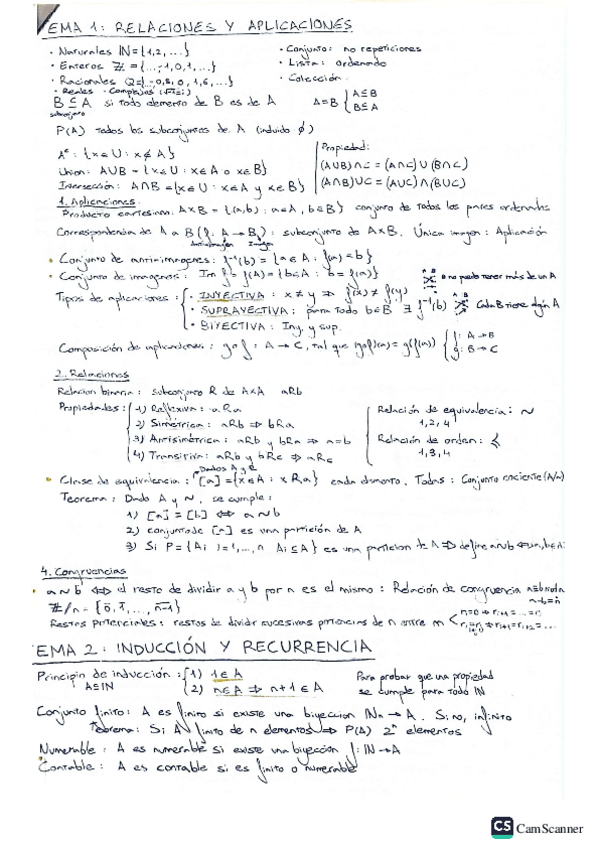 TEMA 1: RELACIONES Y APLICACIONES
· Naturales ℕ={1,2,...}
· Conjunto: no repeticiones
· Enteros ℤ={...,-1,0,1,...}
· Lista: ordenado
· Racionales Q={-0,8,0,1,6,...}
· Colección
· Reales · Complejos (√-1=i)
B ⊆ A si todo elemento de B es de A
A=B { A⊆B
B⊆A
subconjunto
P(A) todos los subconjuntos de A (incluido ∅)
Aᶜ: {x∈U: x∉A}
Propiedad:
Union: A∪B = {x∈U: x∈A o x∈B}
(A∪B)∩C = (A∩C)∪(B∩C)
Intersección: A∩B = {x∈U: x∈A y x∈B}
(A∩B)∪C = (A∪C)∩(B∪C)
1. Aplicaciones
Producto cartesiano: A×B = {(a,b): a∈A, b∈B} conjunto de todos los pares ordenados
Correspondencia de A a B (f: A→B): subconjunto de A×B. Única imagen: Aplicación
Antiimagen Imagen
· Conjunto de antiimágenes: f⁻¹(b) = {a∈A: f(a)=b}
· Conjunto de imágenes: Im f = f(A) = {b∈A: b=f(a)}
A B
B no puede tener más de un A
Tipos de aplicaciones: { · INYECTIVA: x≠y ⇒ f(x)≠f(y)
· SUPRAYECTIVA: para todo b∈B ∃ f⁻¹(b)
A B
Cada B tiene algún A
· BIYECTIVA: Iny. y sup.
Composición de aplicaciones: g∘f: A→C, tal que (g∘f)(a) = g(f(a)) { f: A→B
g: B→C
2. Relaciones
Relacion binaria: subconjunto R de A×A aRb
Propiedades: { 1) Reflexiva: aRa
Relación de equivalencia: ~
2) Simétrica: aRb ⇒ bRa
1, 2, 4
3) Antisimétrica: aRb y bRa ⇒ a=b
Relación de orden: ≼
4) Transitiva: aRb y bRc ⇒ aRc
1, 3, 4
Dados A y R
· Clase de equivalencia: [a]={x∈A: xRa} cada elemento. Todas: Conjunto cociente (A/~)
Teorema: Dado A y ~, se cumple:
1) [a]=[b] ⇔ a~b
2) conjunto de [a] es una partición de A
3) Si P={Ai}i=1,...,n Ai⊆A} es una particion de A ⇒ define a~b
4. Congruencias
· a~b ⇔ el resto de dividir a y b por n es el mismo: Relación de congruencia a≡b mod n
a-b=n̄
ℤ/n = {0̄, 1̄, ..., n-1}
Restos potenciales: restos de dividir sucesivas potencias de n entre m
TEMA 2: INDUCCIÓN Y RECURRENCIA
Principio de inducción: { 1) 1∈A
Para probar que una propiedad
A⊆ℕ
2) n∈A ⇒ n+1∈A
se cumple para todo ℕ
Conjunto finito: A es finito si existe una biyeccion ℕn→A. Si no, infinito
Teorema: Si A finito de n elementos ⇒ P(A) 2ⁿ elementos
Numerable: A es numerable si existe una biyección f: ℕ→A
Contable: A es contable si es finito o numerable
CS CamScanner